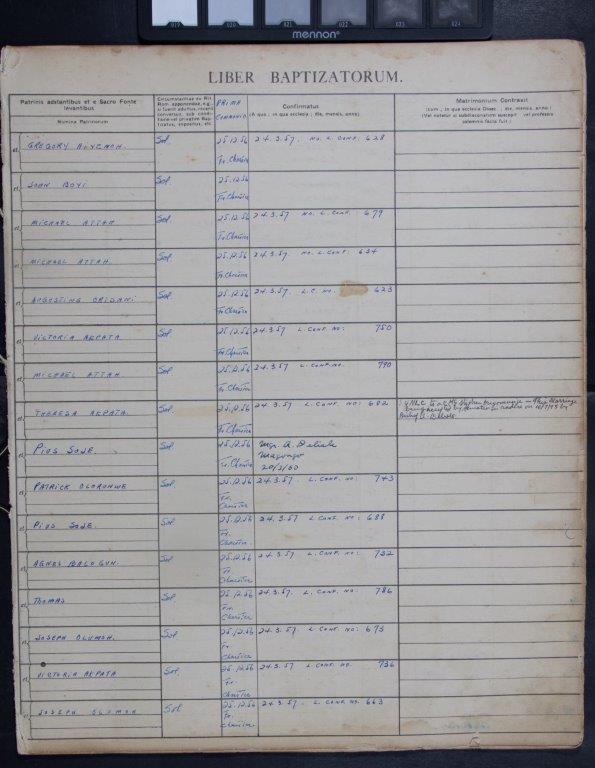 019 020 021 022 023 024
mennon
LIBER BAPTIZATORUM.
Patrinis adstantibus et e Sacro Fonte levantibus
Nomina Patrinorum
PRIMA COMMUNIO
Confirmatus
(A quo; in qua ecclesia; die, mensis, anno)
Matrimonium Contraxit
(cum; in qua ecclesia Dioec; die, mensis, anno)
(Vel notetur si subdiaconatum suscepit vel professio solemnis facta fuit)
et GREGORY Sol. 25.12.56 24.3.57. NO. L. CONF. 628
Fr. Chartier
et JOHN BOYI Sol. 25.12.56
Fr. Chartier
et MICHAEL ATTAH Sol. 25.12.56 24.3.57 NO. L. CONF. 679
Fr. Chartier
et MICHAEL ATTAH. Sol. 25.12.56 24.3.57. NO. L. CONF. 634
Fr. Chartier
et AUGUSTINE Sol. 25.12.56 24.3.57. L.C. NO. 623
Fr. Chartier
et VICTORIA AKPATA Sol. 25.12.56 24.3.57 L. CONF. NO: 750
Fr. Chartier
et MICHAEL ATTAH Sol. 25.12.56 24.3.57. L. CONF. NO. 790
Fr. Chartier
et THERESA AKPATA. Sol. 25.12.56 24.3.57 L. CONF. NO: 682
Fr. Chartier
et PIUS SOJE. Sol. 25.12.56 Mgr. A. Delisle
Fr. Chartier Magongo
20/3/60
et PATRICK OLORUNWE Sol. 25.12.56 24.3.57. L. CONF. NO: 743
Fr. Chartier
et PIUS SOJE. Sol. 25.12.56 24.3.57. L. CONF. NO: 688
Fr. Chartier
et AGNES BALOGUN. Sol 25.12.56 24.3.57. L. CONF. NO: 732
Fr. Chartier
et THOMAS Sol 25.12.56 24.3.57. L. CONF. NO: 786
Fr. Chartier
et JOSEPH OLUMOH. Sol 25.12.56 24.3.57. L. CONF. NO: 673
Fr. Chartier
et VICTORIA AKPATA Sol. 25.12.56 24.3.57 L. CONF. NO. 736
Fr. Chartier
et JOSEPH OLUMOH Sol 25.12.56 24.3.57. L. CONF. NO. 663
Fr. Chartier